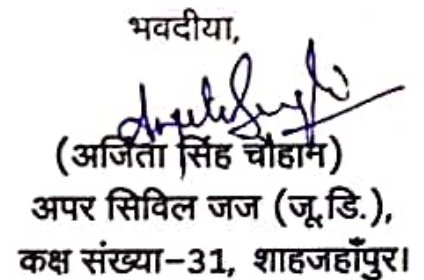 भवदीया,
(अजिता सिंह चौहान)
अपर सिविल जज (जू.डि.),
कक्ष संख्या-31, शाहजहाँपुर।